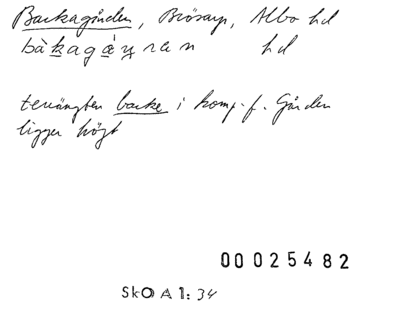 Backagården, Brösarp, Albo hd
bàkagáɹɳ hd
terrängbet backe i komp.f. Gården
ligger högt
00025482
SkO A 1: 34